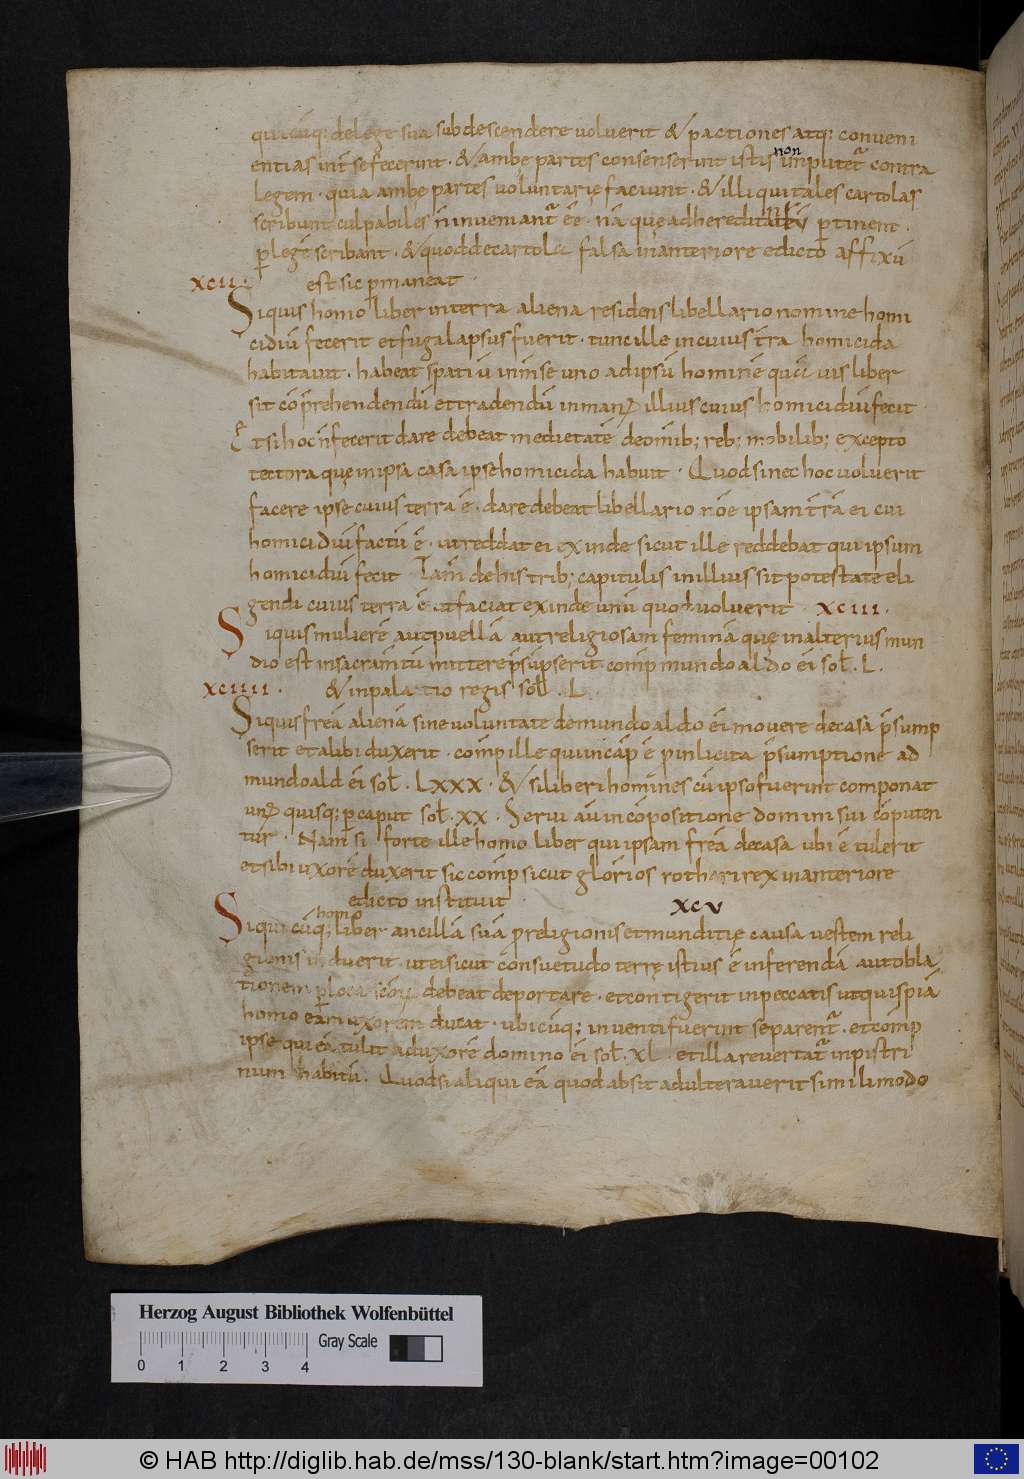 quicūq; de lege sua subdescendere voluerit & pactiones atq; conveni
entias int̄ se fecerint · & ambę partes consenserint istis non imputet̄ contra
legem · quia ambę partes voluntarię faciunt · & illi qui tales cartolas
scribunt culpabiles n̄ inveniant̄ ēē · nā quę ad hereditatē p̄tinent ·
p̄ legē scribant · & quod de cartola falsa in anteriore edicto affixū
xcii · est sic p̄maneat ·
Siquis homo liber in terra aliena residens libellario nomine homi
cidiū fecerit et fuga lapsus fuerit · tunc ille in cuius t̄ra homicida
habitavit · habeat spatiū in mense uno ad ipsū hominē
sit cōp̄rehendendū et tradendū in illius cuius homicidiū fecit
Et si hoc n̄ fecerit dare debeat medietatē de om̄ib; reb; mobilib; excepto
tectora quę in ipsa casa ipse homicida habuit · Quod si nec hoc voluerit
facere ipse cuius terra ē · dare debeat libellario nōe ipsam t̄rā ei cui
homicidiū factū ē · ut reddat ei exinde sicut ille reddebat qui ipsum
homicidiū fecit Tam̄ de his trib; capitulis in illius sit potestate eli
gendi cuius terra ē ut faciat exinde unū quod voluerit xciii ·
Siquis mulierē aut puellā aut religiosam feminā quę in alterius mun
dio est in sacram̄tū mittere p̄sūpserit · comp̄ mundoaldo ei sol̄ · L ·
xciiii · & in palatio regis sol̄ · L
Siquis freā alienā sine voluntate de mundoaldo ei movere de casa p̄sump
serit et alibi duxerit · comp̄ ille qui in cap̄ ē p̄ inlicita p̄sumptione ad
mundoald ei sol̄ · Lxxx · & si liberi homines cū ipso fuerint componat
quisq; p̄ caput sol̄ · xx · Servi aū in cōpositione domini sui cōputen
tur · Nam si forte ille homo liber qui ipsam freā de casa ubi ē tulerit
et sibi uxorē duxerit sic comp̄ sicut glorios rothari rex in anteriore
edicto instituit xcv
Siquicūq; homo liber ancillā suā p̄ religionis et munditię causa vestem reli
gionis induerit · ut ei sicut consuetudo terrę istius ē inferendā aut obla
tionem p̄ loca debeat deportare · et contigerit in peccatis ut quispiā
homo eam uxorem ducat · ubicūq; inventi fuerint separent̄ · et comp̄
ipse qui eā tulit ad uxorē domino ei sol̄ · xL · et illa revertat̄ in pistri
num habitū · Quod si aliqui eā quod absit adulteraverit simili modo
Herzog August Bibliothek Wolfenbüttel
Gray Scale
0 1 2 3 4
© HAB http://diglib.hab.de/mss/130-blank/start.htm?image=00102